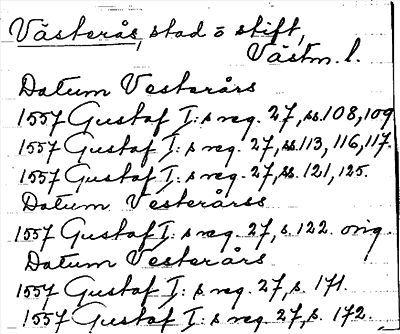 Västerås, stad o stift,
Västm. l.
Datum Vesterårs
1557 Gustaf I:s reg. 27, ss. 108, 109
1557 Gustaf I:s reg. 27, ss. 113, 116, 117.
1557 Gustaf I:s reg. 27, ss. 121, 125.
Datum Vesterårss
1557 Gustaf I:s reg. 27, s. 122. orig.
Datum Vesterårs
1557 Gustaf I:s reg. 27, s. 171.
1557 Gustaf I:s reg. 27, s. 172.